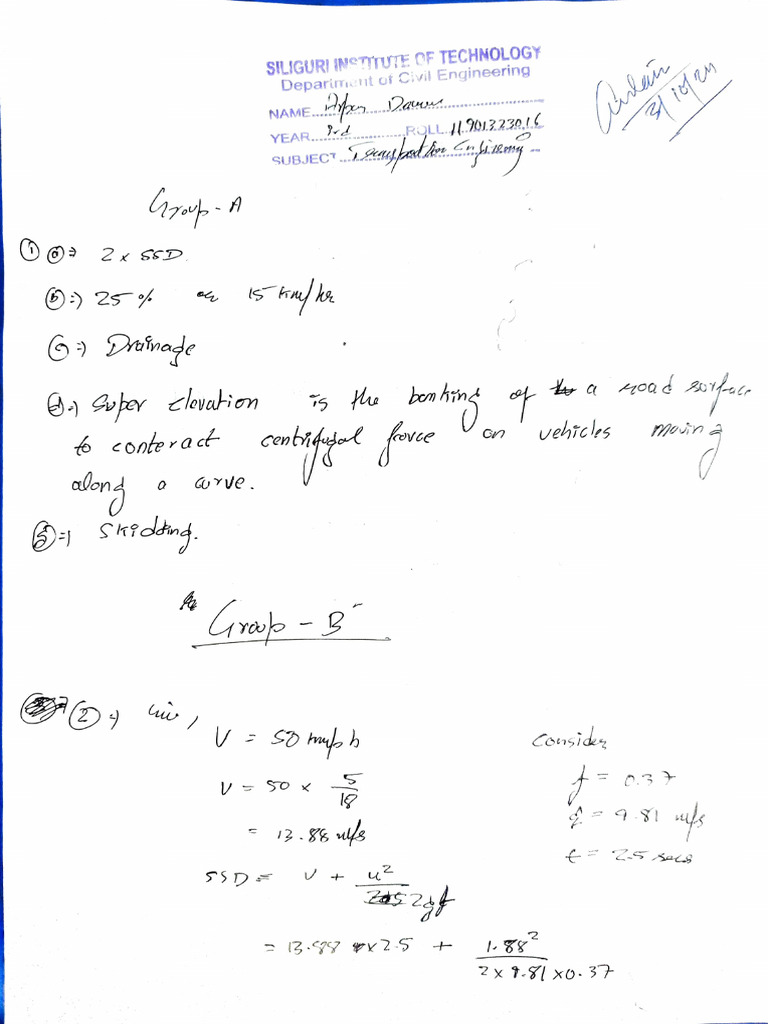 SILIGURI INSTITUTE OF TECHNOLOGY
Department of Civil Engineering
NAME
YEAR 3rd ROLL 11901323016
SUBJECT Transportation Engineering
31/10/24
Group-A
① ⓐ⇒ 2 x SSD
ⓑ⇒ 25% or 15 km/hr
ⓒ⇒ Drainage
ⓓ⇒ Super elevation is the banking of a road surface
to conteract centrifugal force on vehicles moving
along a curve.
⇒ Skidding.
Group - B
② ⇒
V = 50 consider
V = 50 × 5/18 f = 0.37
= 13.88 m/s g = 9.81 m/s
SSD = v + u²/2gf t = 2.5 secs
= 13.88 × 2.5 + 1.88²/2×9.81×0.37